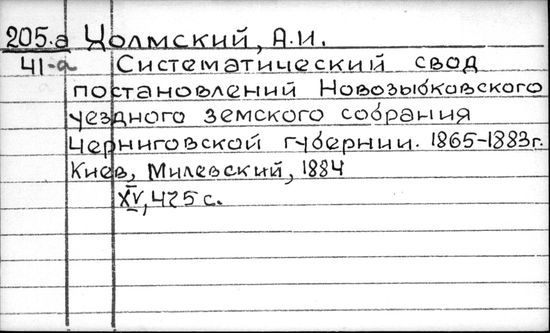 205.а Холмский, А.И.
41-а Систематический свод
постановлений Новозыбковского
уездного земского собрания
Черниговской губернии. 1865-1883г.
Киев, Милевский, 1884
XV, 475 с.